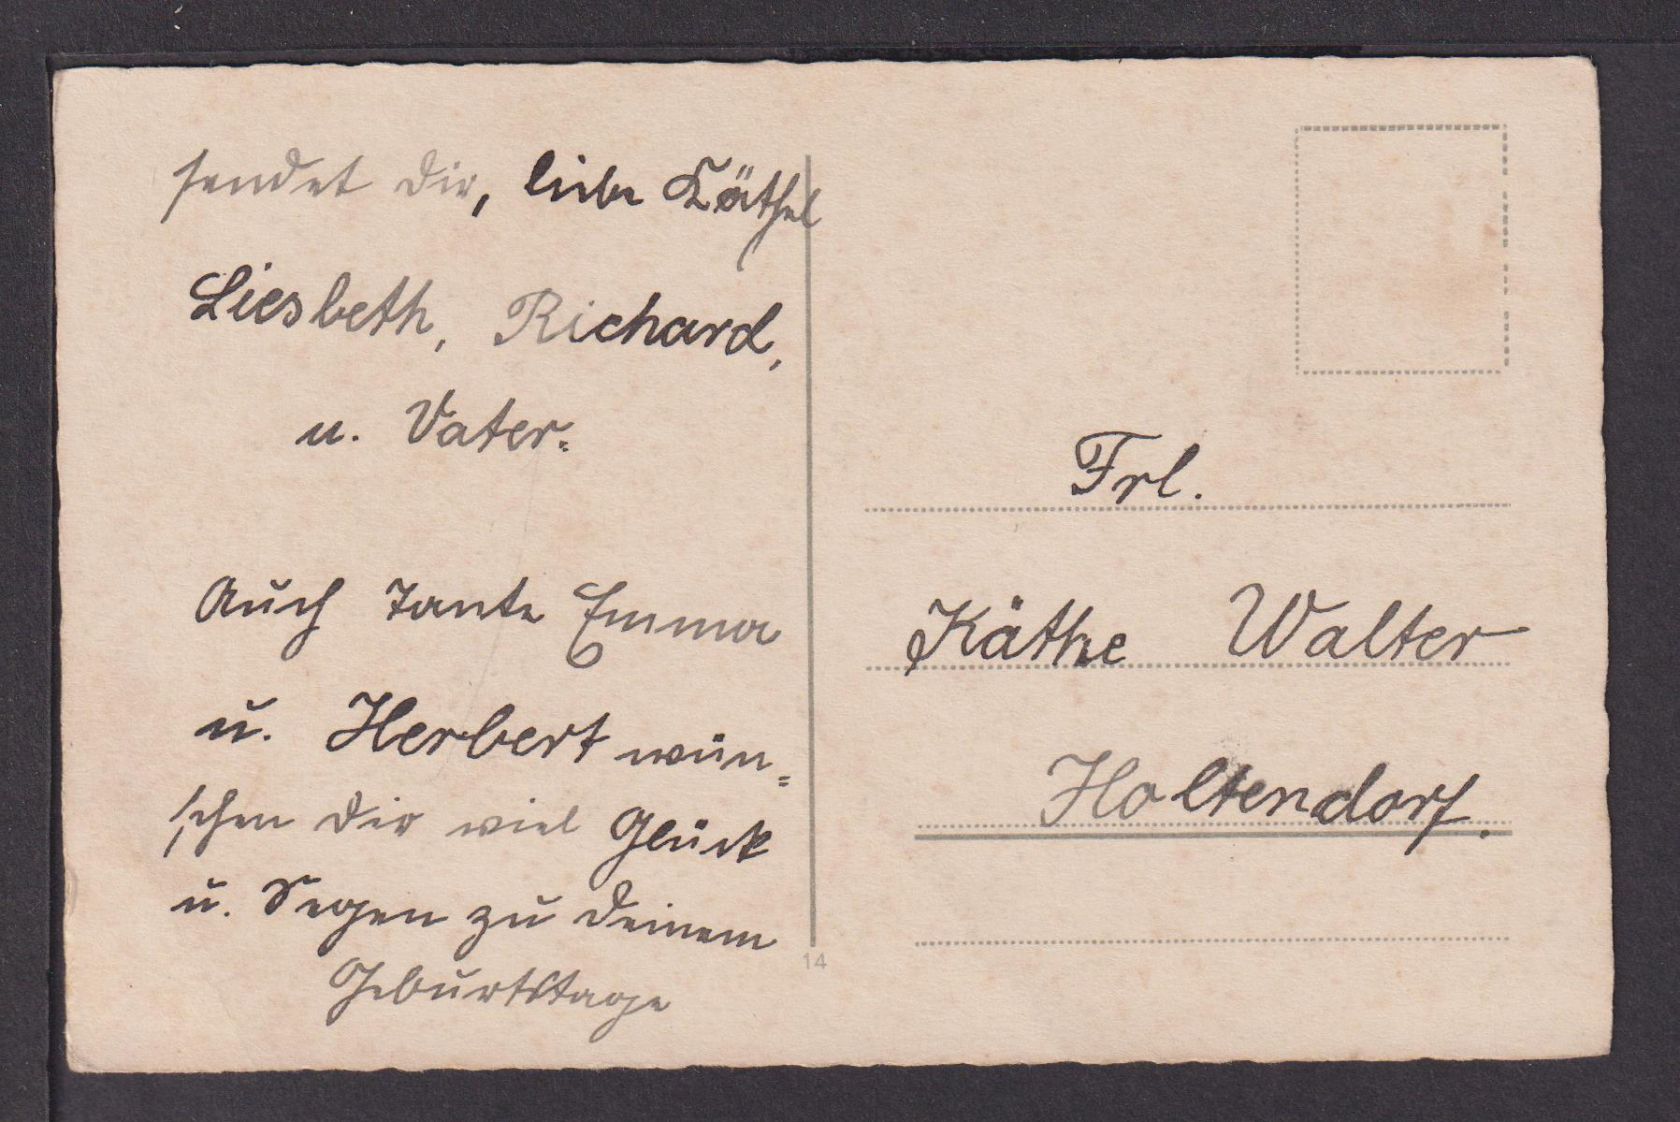 sendet Dir, liebe Käthel
Liesbeth, Richard,
u. Vater.
Auch Tante Emma
u. Herbert wün=
schen Dir viel Glück
u. Segen zu Deinem
Geburtstage
14
Frl.
Käthe Walter
Holtendorf.